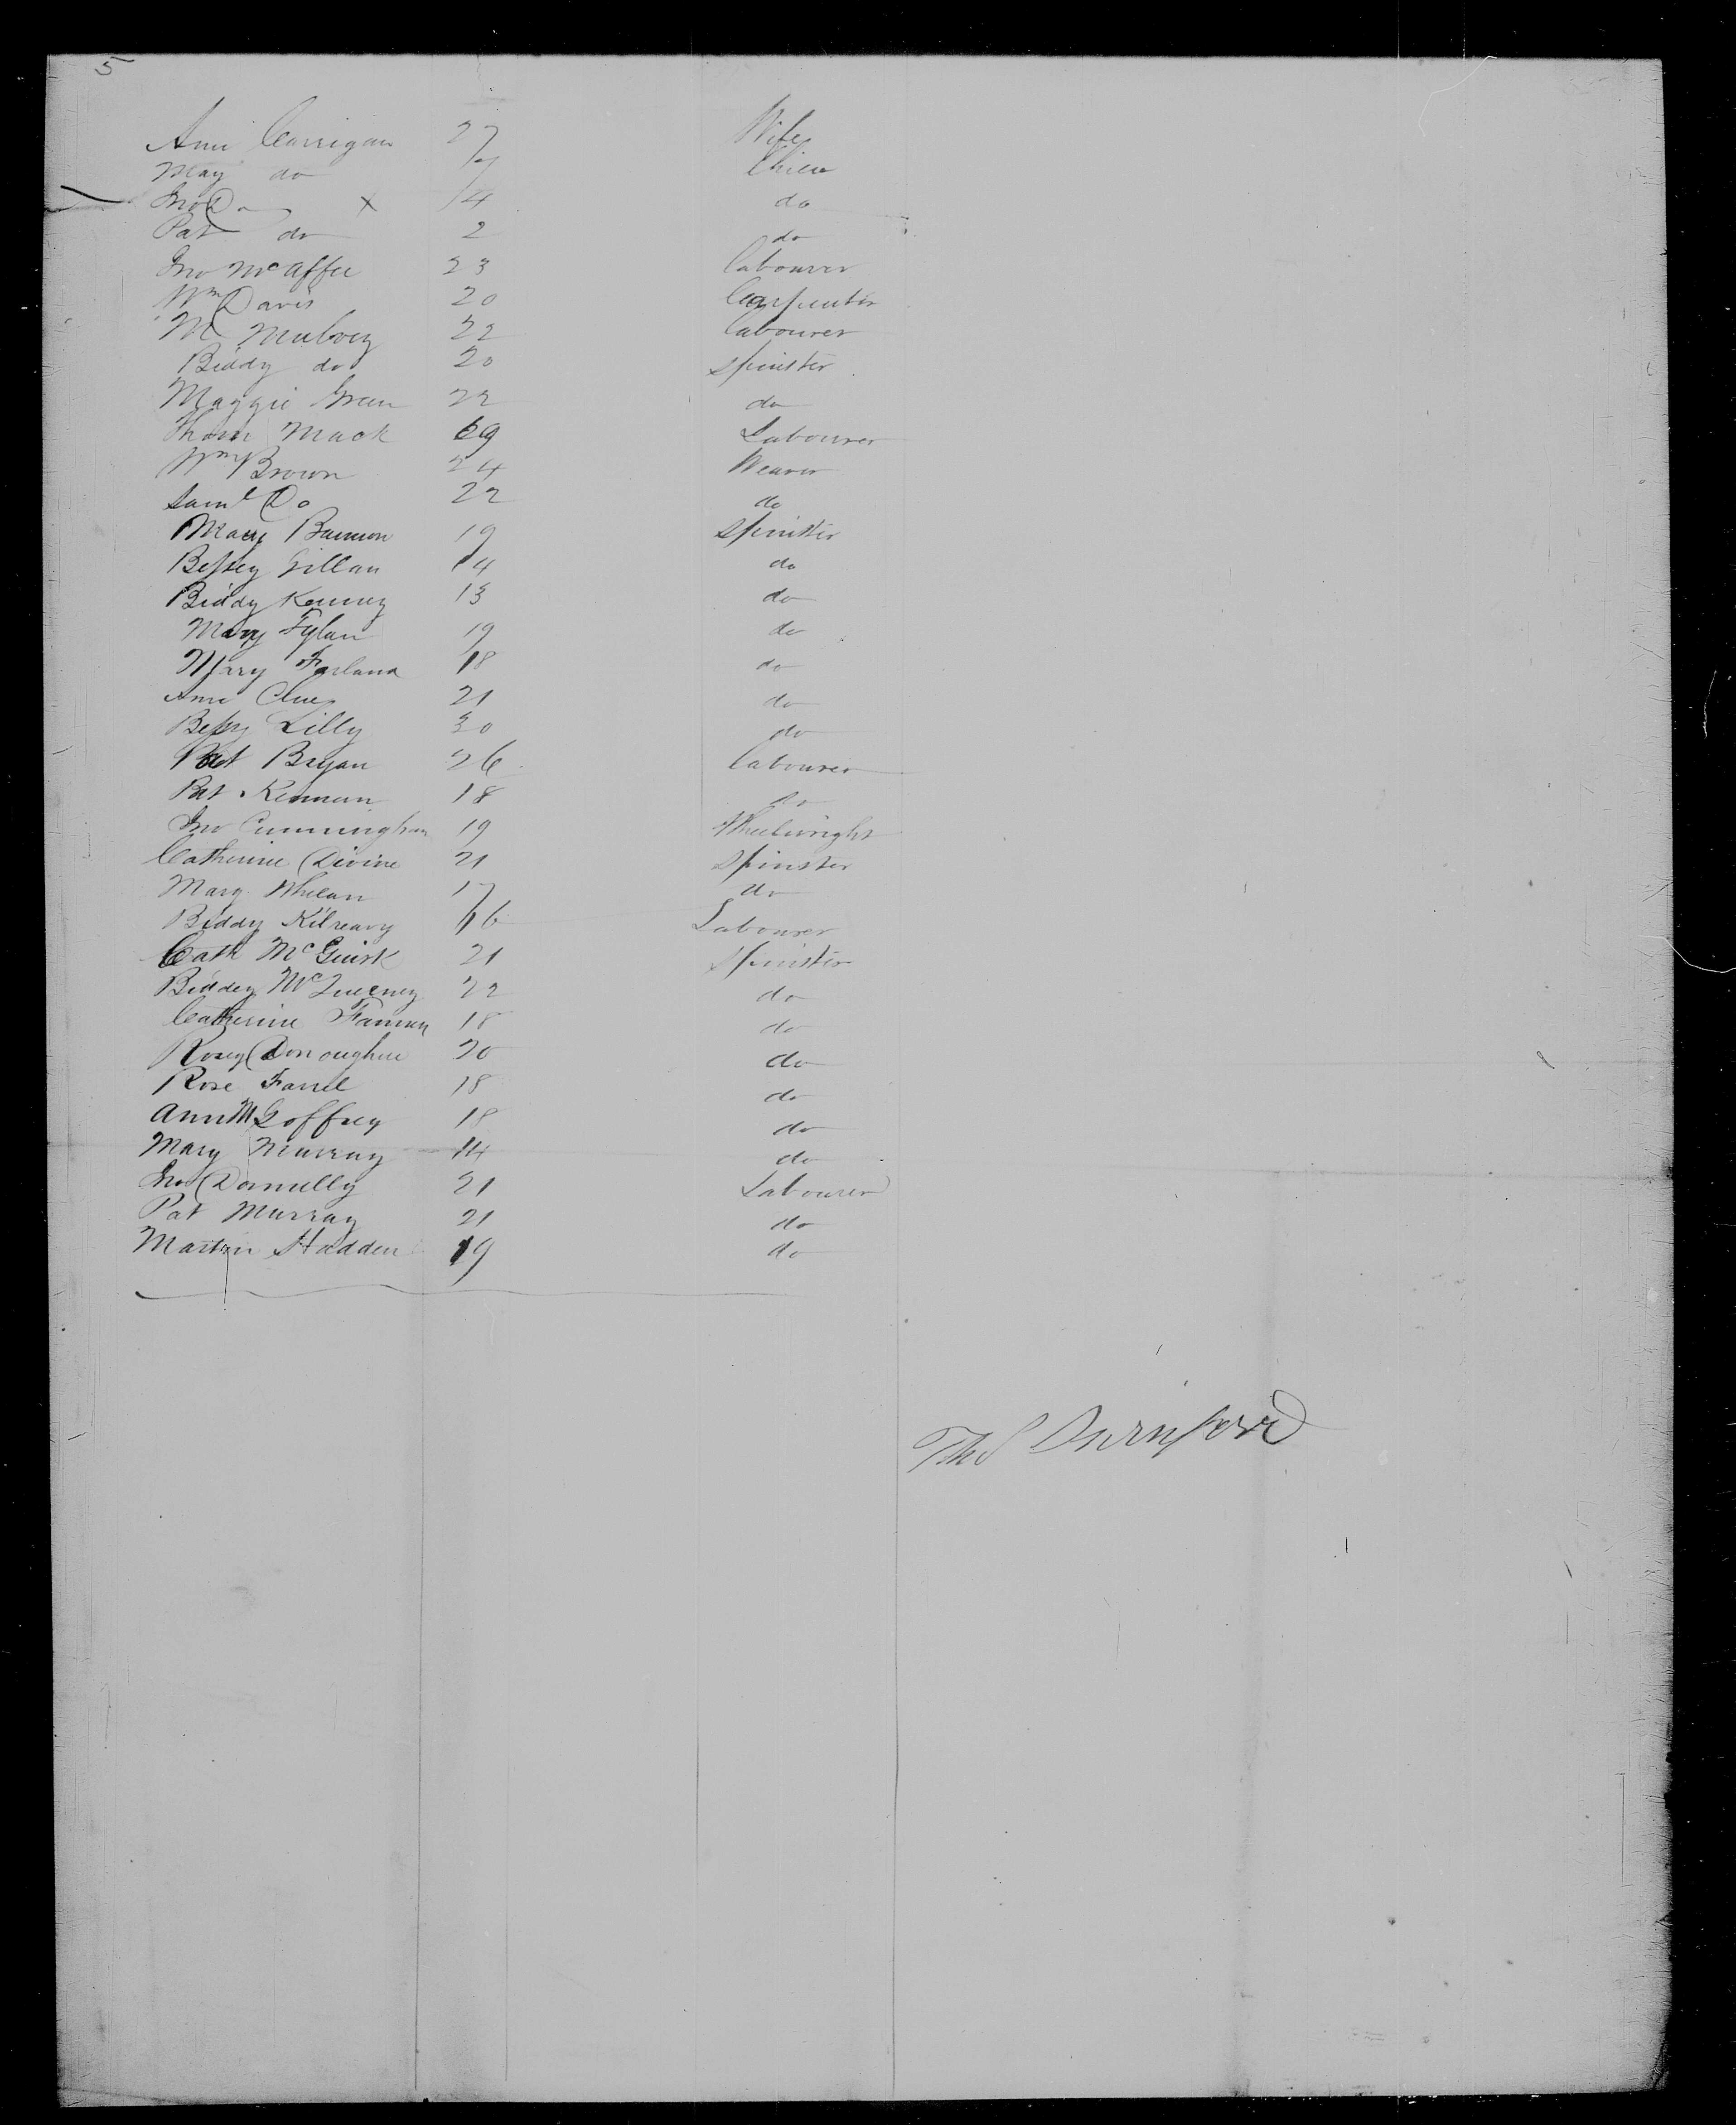 5
Ann Carrigan 27 Wife
May do 7 Child
Jno Do x 4 do
Pat do 2 do
Jno McAffee 23 labourer
Wm Davis 20 Carpenter
M Mulvey 22 labourer
Biddy do 20 spinster
Maggie Green 22 do
Thom Mack 29 Labourer
Wm Brown 24 Weaver
Saml Do 22 do
Mary Bannon 19 spinster
Bessey Gillan 14 do
Biddy Kenney 13 do
Mary Fylan 19 do
Mary Farland 18 do
Ann 21 do
Bessy Lilly 30 do
Pat Bryan 26 labourer
Pat Kennan 18 do
Jno Cunningham 19 Wheelwright
Catherine Divine 21 spinster
Mary Whelan 17 do
Biddy Kilreavy 16 Labourer
Cath McGuirk 21 spinster
Biddey 22 do
Catherine Fannen 18 do
Rosey Donoughue 20 do
Rose Farrel 18 do
Ann McGoffrey 18 do
Mary Murray 14 do
Jno Donnelly 21 Labourer
Pat Murray 21 do
Martin Hadden 19 do
Thos Durnford